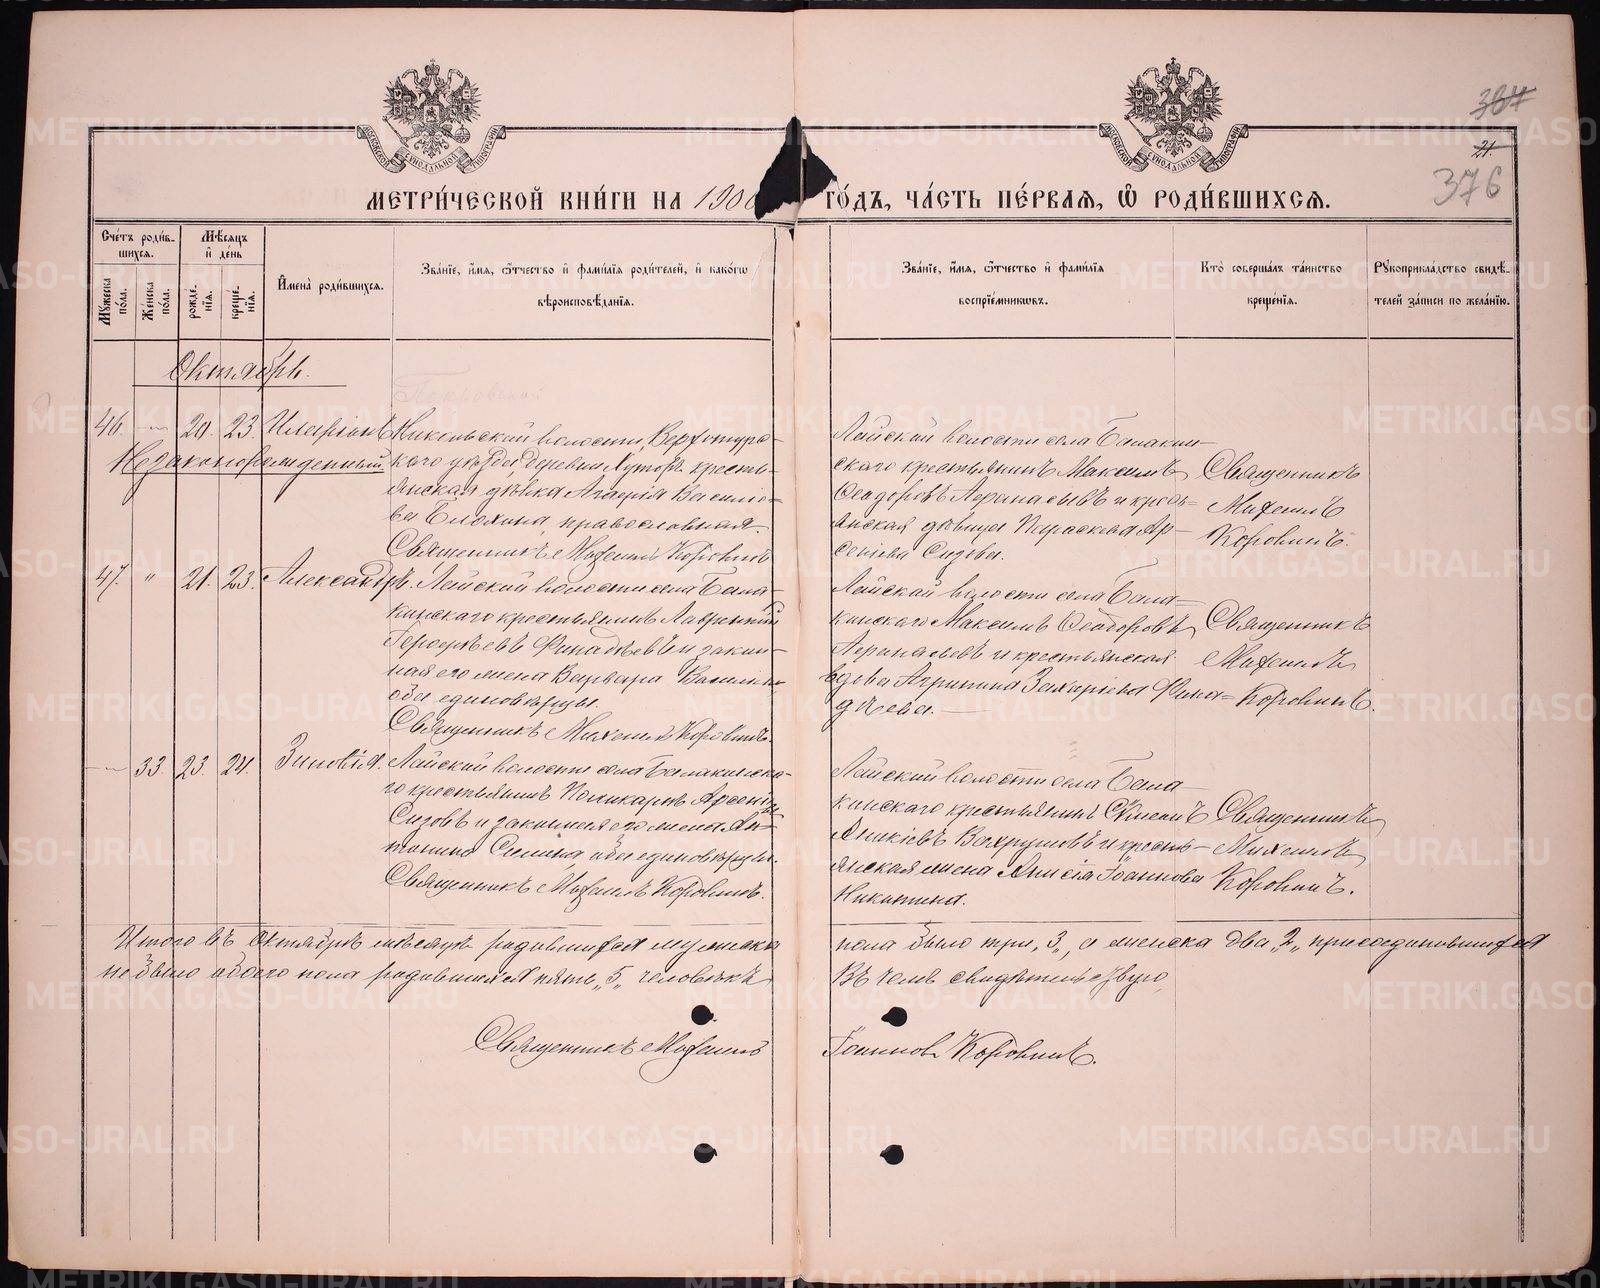 367
21.
376
МЕТРИ́ЧЕСКОЙ КНИ́ГИ НА 1900 ГО́ДЪ, ЧА́СТЬ ПЕ́РВАЯ, Ѡ РОДИ́ВШИХСЯ.
Сче́тъ роди́в-
шихся.
Мѣ́сяцъ
и҆ де́нь
Мꙋ́жеска
по́ла.
Же́нска
по́ла.
рожде-
нїя.
креще-
нїя.
И҆мена̀ роди́вшихся.
Зва́нїе, и҆́мя, ѻ҆́тчество и҆ фами́лїя роди́телей, и҆ како́гѡ
вѣроисповѣ́данїя.
Зва́нїе, и҆́мя, ѻ҆́тчество и҆ фами́лїя
воспрїе́мникѡвъ.
Кто̀ соверша́лъ та́инство
креще́нїя.
Рꙋкоприкла́дство свидѣ́-
телей за́писи по жела́нїю.
Октябрь.
46. 20 23. Иларіонъ
Незаконорожденный
Никольской волости, Верхотурс-
каго уѣзда деревни Хуторъ кресть-
янская дѣвка Агафія Василіе-
ва Блохина, православная.
Священникъ Михаилъ Коровинъ
Лайской волости села Балакин-
скаго крестьянинъ Максимъ
Ѳеодоровъ Афанасьевъ и кресть-
янская дѣвица Параскева Ар-
сеніева Сизова.
Священникъ
Михаилъ
Коровинъ.
47. " 21. 23. Александръ.
Лайской волости села Бала-
кинскаго крестьянинъ Лаврентій
Финадѣевъ и закон-
ная его жена Варвара
оба единовѣрцы.
Священникъ Михаилъ Коровинъ.
Лайской волости села Бала-
кинскаго Максимъ Ѳеодоровъ
Афанасьевъ и крестьянская
вдова Агрипина Захаріева Фина-
дѣева.
Священникъ
Михаилъ
Коровинъ.
33. 23. 24. Зиновія.
Лайской волости села Балакинска-
го крестьянинъ Поликарпъ Арсеніевъ
Сизовъ и законная его жена Ан-
тонина оба единовѣрцы.
Священникъ Михаилъ Коровинъ.
Лайской волости села Бала-
кинскаго крестьянинъ Симеонъ
Іоанникіевъ Вахрушевъ и кресть-
янская жена Анисія Іоаннова
Никитина.
Священникъ
Михаилъ
Коровинъ.
Итого въ Октябрѣ мѣсяцѣ родившихся мужеска пола было три „3„ а женска два „2„ присоединившихся
не было обоего пола родившихся пять „5„ человѣкъ Въ чемъ свидѣтельствую,
Священникъ Михаилъ Іоанновъ Коровинъ.
METRIKI.GASO-URAL.RU